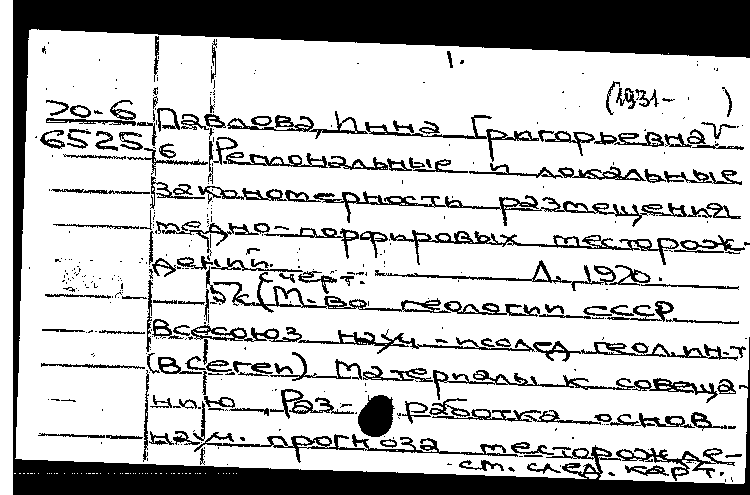 1.
(1931- )
70-6
6525
Павлова, Инна Григорьевна
6 Региональные и локальные
закономерность размещения
медно-порфировых месторож-
дений
Л., 1970.
с черт.
(М-во геологии СССР.
Всесоюз науч-исслед геол.ин-т
(ВСегеи). Материалы к совеща-
нию „Раз- работка основ
науч. прогноза месторожде-
-ст. след. карт.